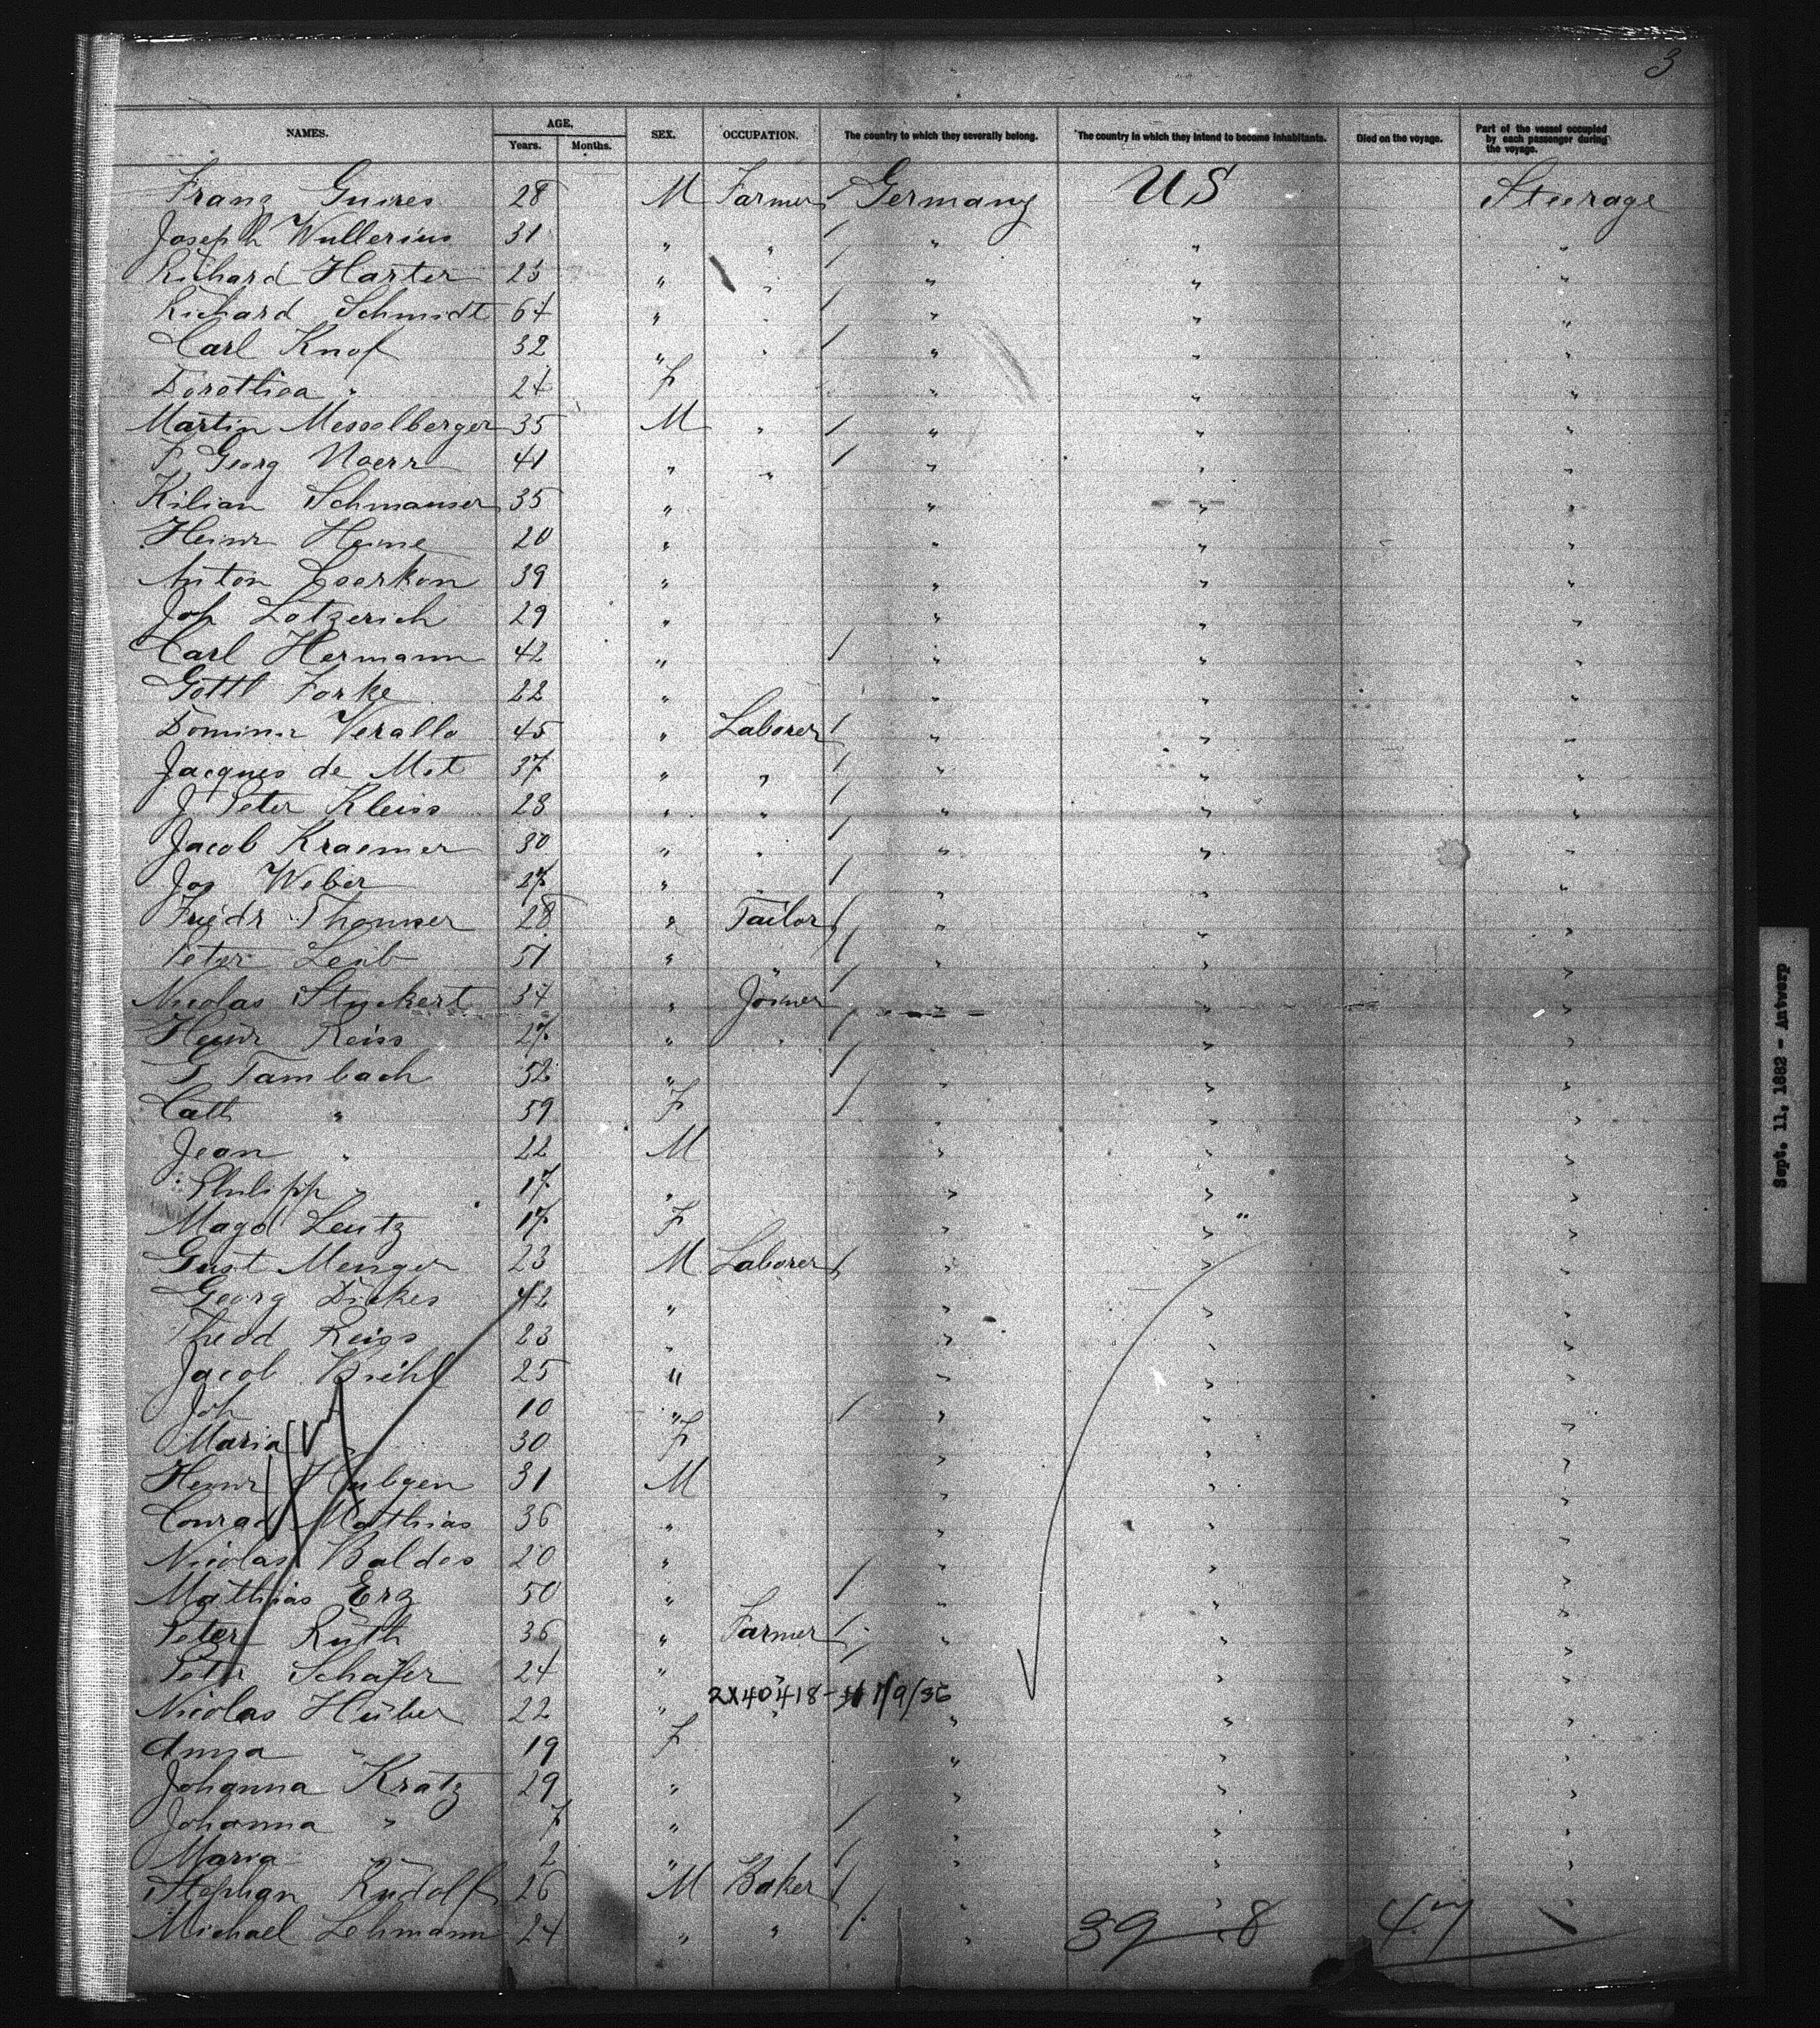 3
NAMES. AGE. SEX. OCCUPATION. The country to which they severally belong. The country in which they intend to become inhabitants. Died on the voyage. Part of the vessel occupied by each passenger during the voyage.
Years. Months.
Franz 28 M Farmer Germany US Steerage
Joseph Wullerius 31 " " " " "
Richard Harter 25 " " " " "
Richard Schmidt 64 " " " " "
Carl Knof 32 " " " " "
Dorothea " 24 F " " "
Martin Messelberger 35 M " " " "
F Georg Noerr 41 " " " " "
Kilian Schmauser 35 " " " "
Heinr Heine 20 " " " "
Anton 39 " " " "
Joh Lotzerich 29 " " " "
Carl Hermann 42 " " " "
Gottl Forke 22 " " " "
Verallo 45 " Laborer " " "
Jacques de Mot 37 " " " " "
J Peter Kleiss 28 " " " " "
Jacob Kraemer 30 " " " " "
Jos Weber 27 " " " "
Friedr 28 " Tailor " " "
Peter Leib 51 " " " "
Nicolas Stuckert 34 " Joiner " " "
Heinr Reiss 27 " " " " "
G Tambach 52 " " " "
Cath " 59 F " " "
Jean " 22 M " " "
Philipp " 17 " " " "
Magd Leutz 17 F " " "
Gust Menger 23 M Laborer " " "
Georg Dickes 42 " " " "
Theod Reiss 23 " " " "
Jacob 25 " " " "
Joh 10 " " " "
Maria " 30 F " " "
Heinr Hubgen 31 M " " "
Conrad Mathias 36 " " " "
Nicolas Baldes 20 " " " "
Mathias Erz 50 " " " "
Peter Ruth 36 " Farmer " " "
Peter Schäfer 24 " " " " "
2X40418- 1/9/36
Nicolas Huber 22 " " " " "
Anna " 19 F " " "
Johanna Kratz 29 " " " "
Johanna " 7 " " " "
Maria " 2 " " " "
Stephan Rudolf 26 M Baker " " "
Michael Lehmann 24 " " "
39 8 47
Sept. 11, 1882 - Antwerp